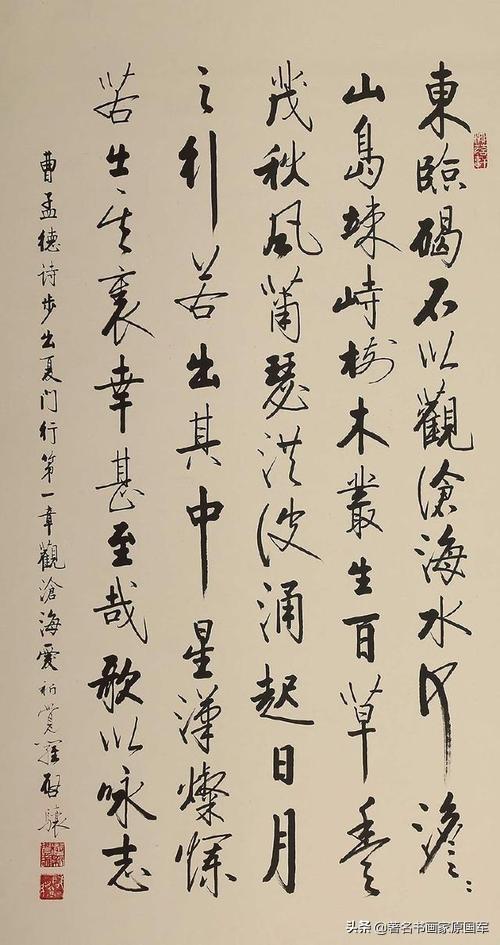 東臨碣石以觀滄海水何澹〻
山島竦峙樹木叢生百草豐
茂秋風蕭瑟洪波涌起日月
之行若出其中星漢燦爛
若出其裏幸甚至哉歌以咏志
曹孟德詩步出夏門行第一章觀滄海愛新覺羅啟驤
头条 @著名书画家原国军